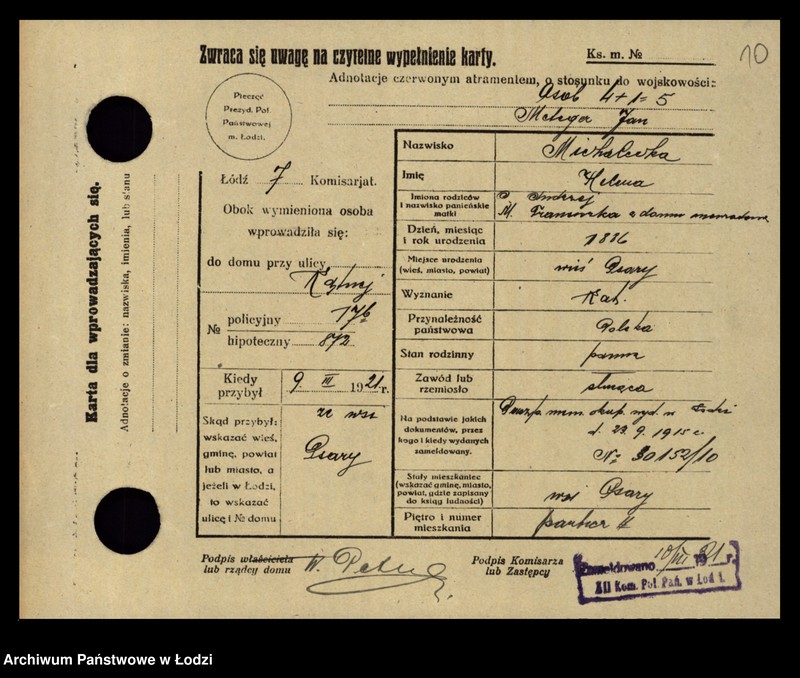 Zwraca się uwagę na czytelne wypełnienie karty.
Ks. m. №
10
Adnotacje czerwonym atramentem, o stosunku do wojskowości:
Osób 4+1=5
Jan
Pieczęć
Prezyd. Pol.
Państwowej
m. Łodzi.
Łódź 7 Komisarjat.
Obok wymieniona osoba
wprowadziła się:
do domu przy ulicy
Kątnej
№ policyjny 17b
hipoteczny 872
Kiedy przybył 9 III 1921 r.
Skąd przybył:
wskazać wieś,
gminę, powiat
lub miasto, a
jeżeli w Łodzi,
to wskazać
ulicę i № domu
ze wsi
Psary
Nazwisko Michalewska
Imię Helena
Imiona rodziców
i nazwisko panieńskie
matki
O. Andrzej
M. Franciszka z domu
Dzień, miesiąc
i rok urodzenia
1886
Miejsce urodzenia
(wieś, miasto, powiat)
wieś Psary
Wyznanie Kat.
Przynależność
państwowa
Polska
Stan rodzinny panna
Zawód lub
rzemiosło
służąca
Na podstawie jakich
dokumentów, przez
kogo i kiedy wydanych
zameldowany.
Paszp. niem. okup. wyd. w Łodzi
d. 23. 9. 1915 r.
№ 30152/10
Stały mieszkaniec
(wskazać gminę, miasto,
powiat, gdzie zapisany
do ksiąg ludności)
wsi Psary
Piętro i numer
mieszkania
parter
Podpis właściciela
lub rządcy domu
Podpis Komisarza
lub Zastępcy
Zameldowano 10/III 1921 r.
XII Kom. Pol. Pań. w Łodzi.
Karta dla wprowadzających się.
Adnotacje o zmianie: nazwiska, imienia, lub stanu
Archiwum Państwowe w Łodzi